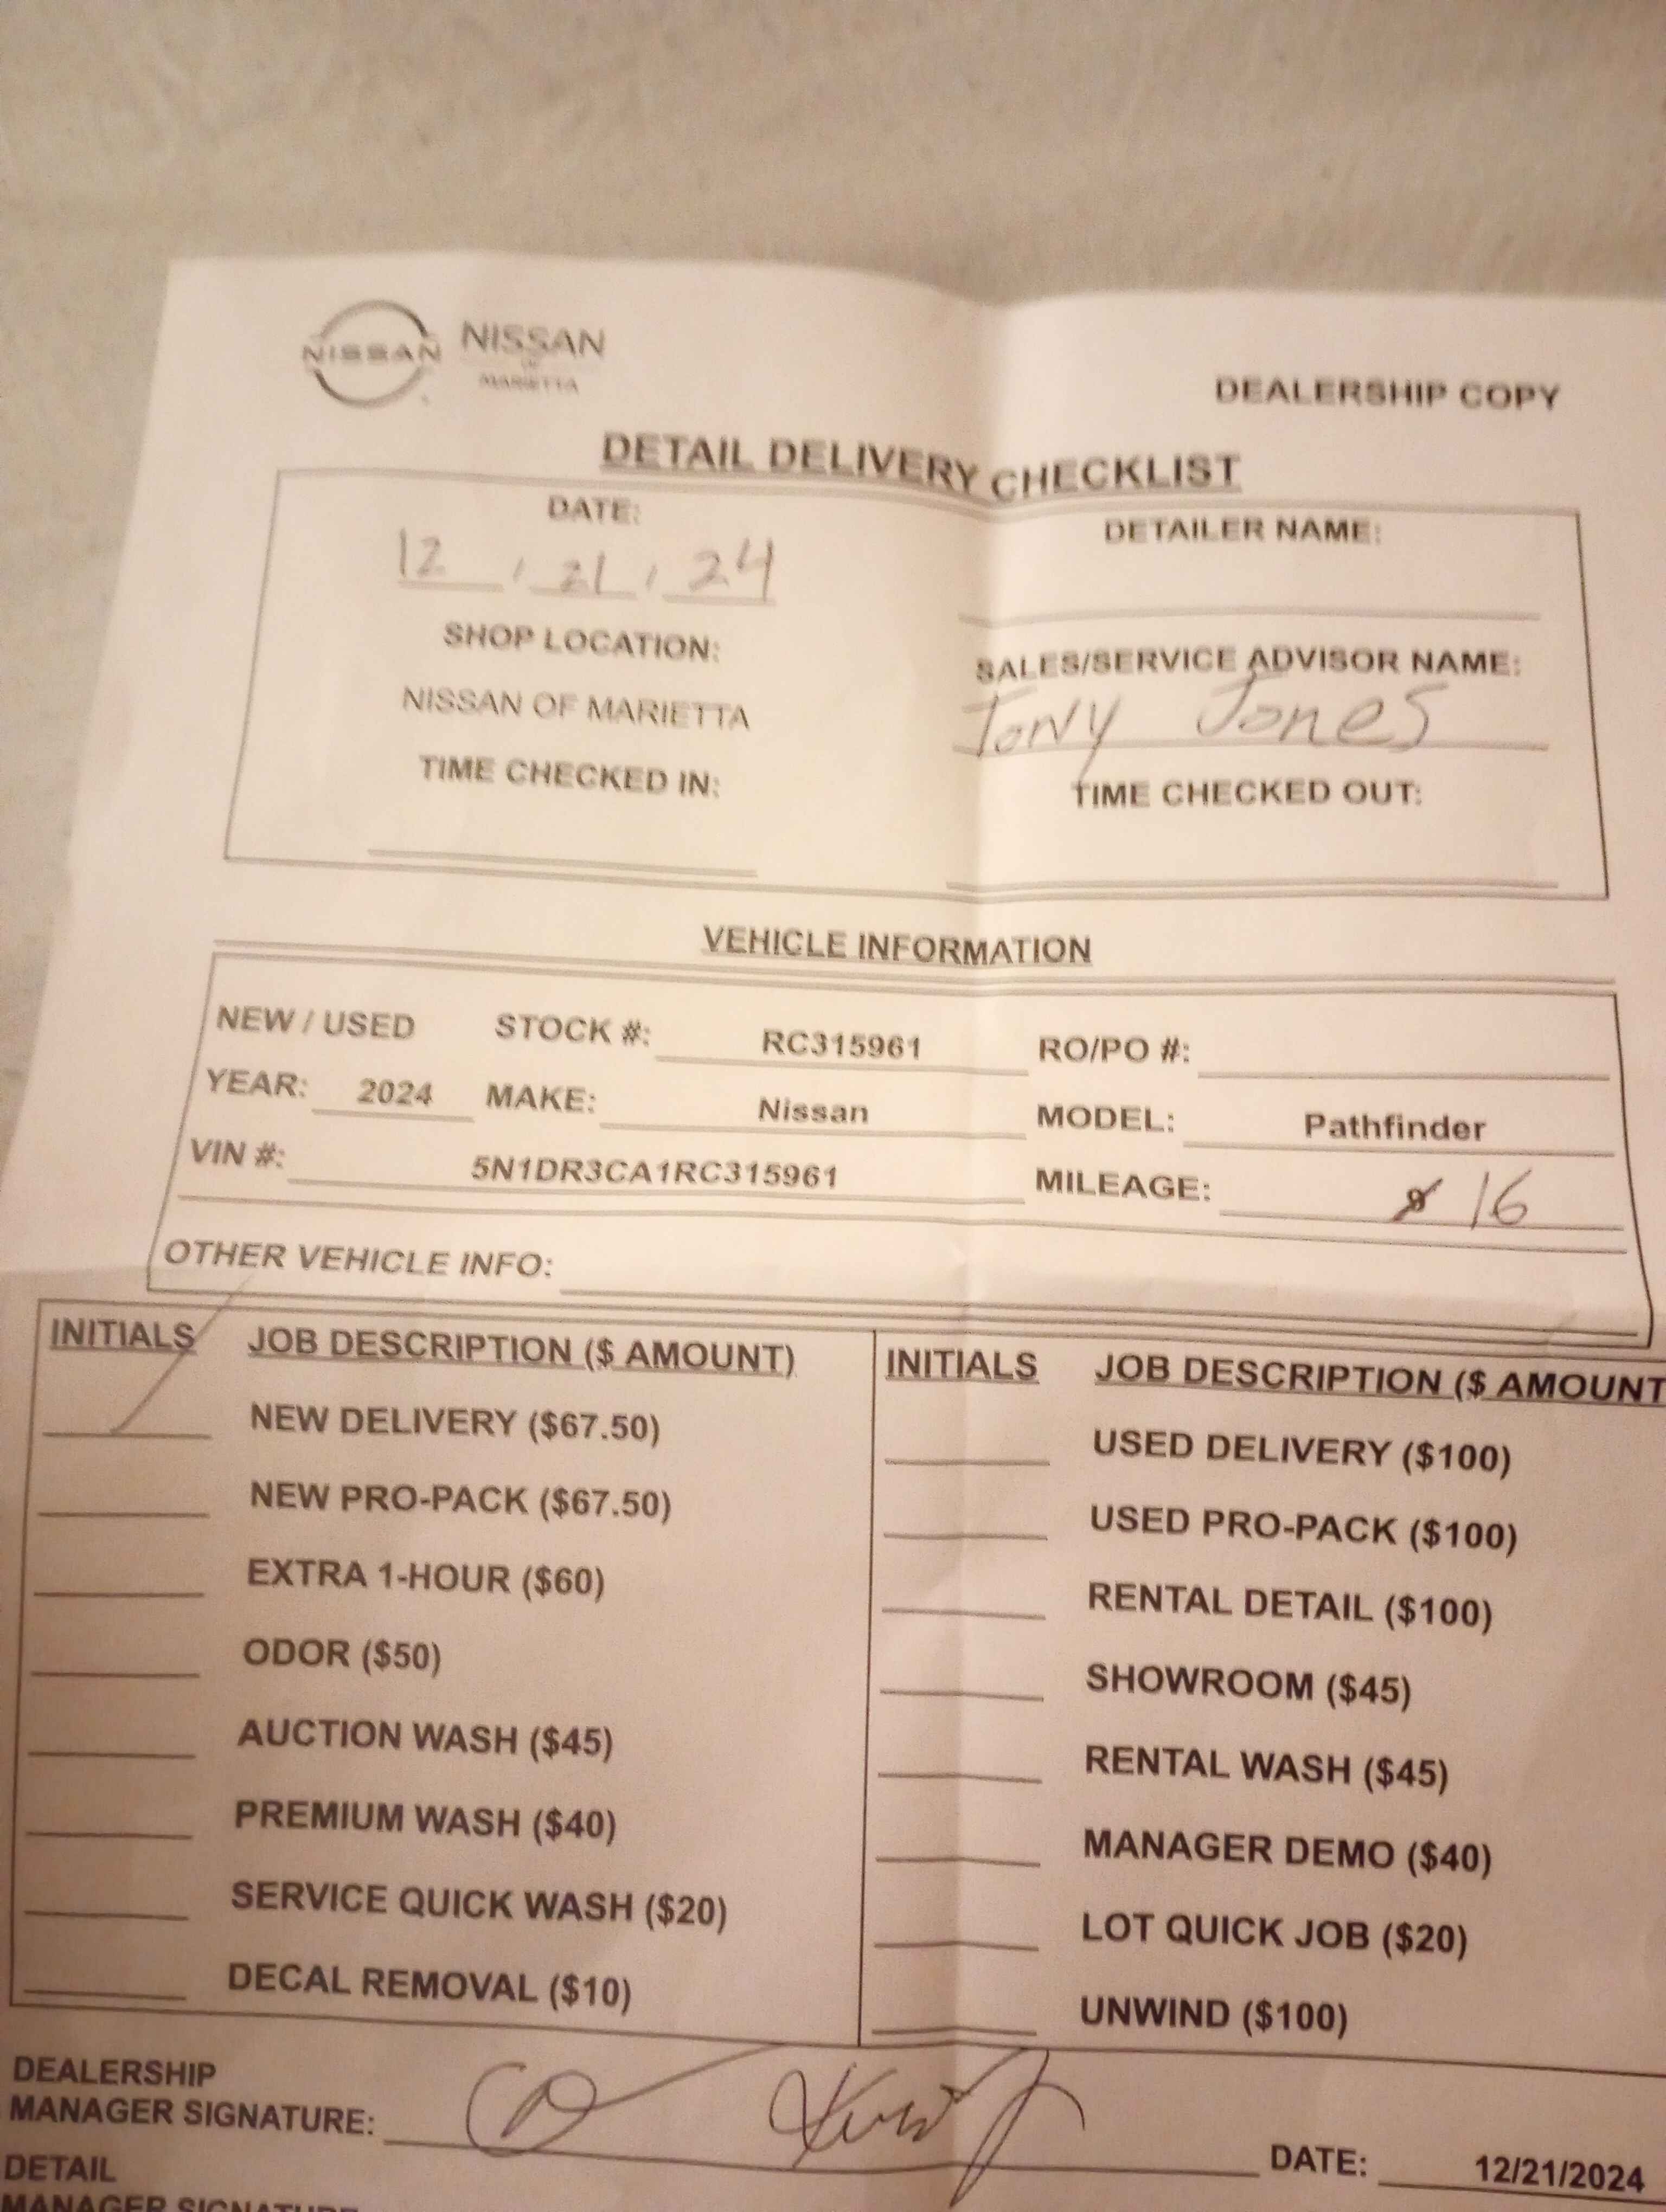 NISSAN NISSAN
OF
MARIETTA
DEALERSHIP COPY
DETAIL DELIVERY CHECKLIST
DATE:
12 / 21 / 24
DETAILER NAME:
SHOP LOCATION:
NISSAN OF MARIETTA
SALES/SERVICE ADVISOR NAME:
Tony Jones
TIME CHECKED IN:
TIME CHECKED OUT:
VEHICLE INFORMATION
NEW / USED STOCK #: RC315961 RO/PO #:
YEAR: 2024 MAKE: Nissan MODEL: Pathfinder
VIN #: 5N1DR3CA1RC315961 MILEAGE: 16
OTHER VEHICLE INFO:
INITIALS JOB DESCRIPTION ($ AMOUNT)
NEW DELIVERY ($67.50)
NEW PRO-PACK ($67.50)
EXTRA 1-HOUR ($60)
ODOR ($50)
AUCTION WASH ($45)
PREMIUM WASH ($40)
SERVICE QUICK WASH ($20)
DECAL REMOVAL ($10)
INITIALS JOB DESCRIPTION ($ AMOUNT
USED DELIVERY ($100)
USED PRO-PACK ($100)
RENTAL DETAIL ($100)
SHOWROOM ($45)
RENTAL WASH ($45)
MANAGER DEMO ($40)
LOT QUICK JOB ($20)
UNWIND ($100)
DEALERSHIP
MANAGER SIGNATURE:
DATE: 12/21/2024
DETAIL
MANAGER SIGNATURE